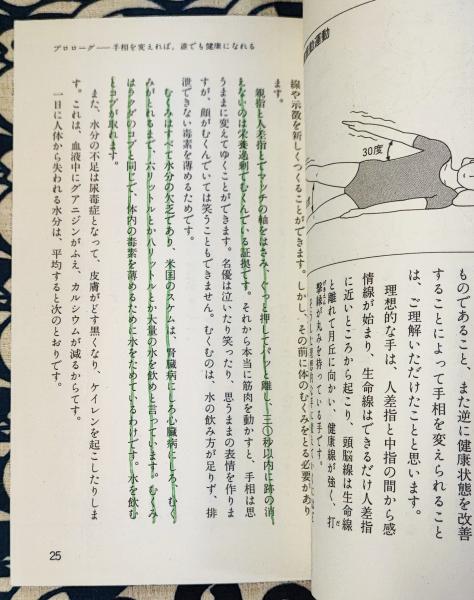 運動
30度
ものであること、また逆に健康状態を改善
することによって手相を変えられること
は、ご理解いただけたことと思います。
理想的な手は、人差指と中指の間から感
情線が始まり、生命線はできるだけ人差指
に近いところから起こり、頭脳線は生命線
と離れて月丘に向かい、健康線が強く、打
撃縁が丸みを持っている手です。
プロローグ——手相を変えれば、誰でも健康になれる
線や示徴を新しくつくることができます。しかし、その前に体のむくみをとる必要があり
ます。
親指と人差指とでマッチの軸をはさみ、ぐっと押してパッと離し、三〇秒以内に跡の消
えないのは栄養過剰でむくんでいる証拠です。それから本当に筋肉を動かすと、手相は思
うままに変えてゆくことができます。名優は泣いたり笑ったり、思うままの表情を作りま
すが、顔がむくんでいては笑うこともできません。むくむのは、水の飲み方が足りず、排
泄できない毒素を薄めるためです。
むくみはすべて水分の欠乏であり、米国のスケムは、腎臓病にしろ心臓病にしろ、むく
みがとれるまで、六リットルとか八リットルとか大量の水を飲めと言っています。むくみ
はラクダのコブと同じで、体内の毒素を薄めるために水をためているわけです。水を飲む
とコブが取れます。
また、水分の不足は尿毒症となって、皮膚がどす黒くなり、ケイレンを起こしたりしま
す。これは、血液中にグアニジンがふえ、カルシウムが減るからです。
一日に人体から失われる水分は、平均すると次のとおりです。
25